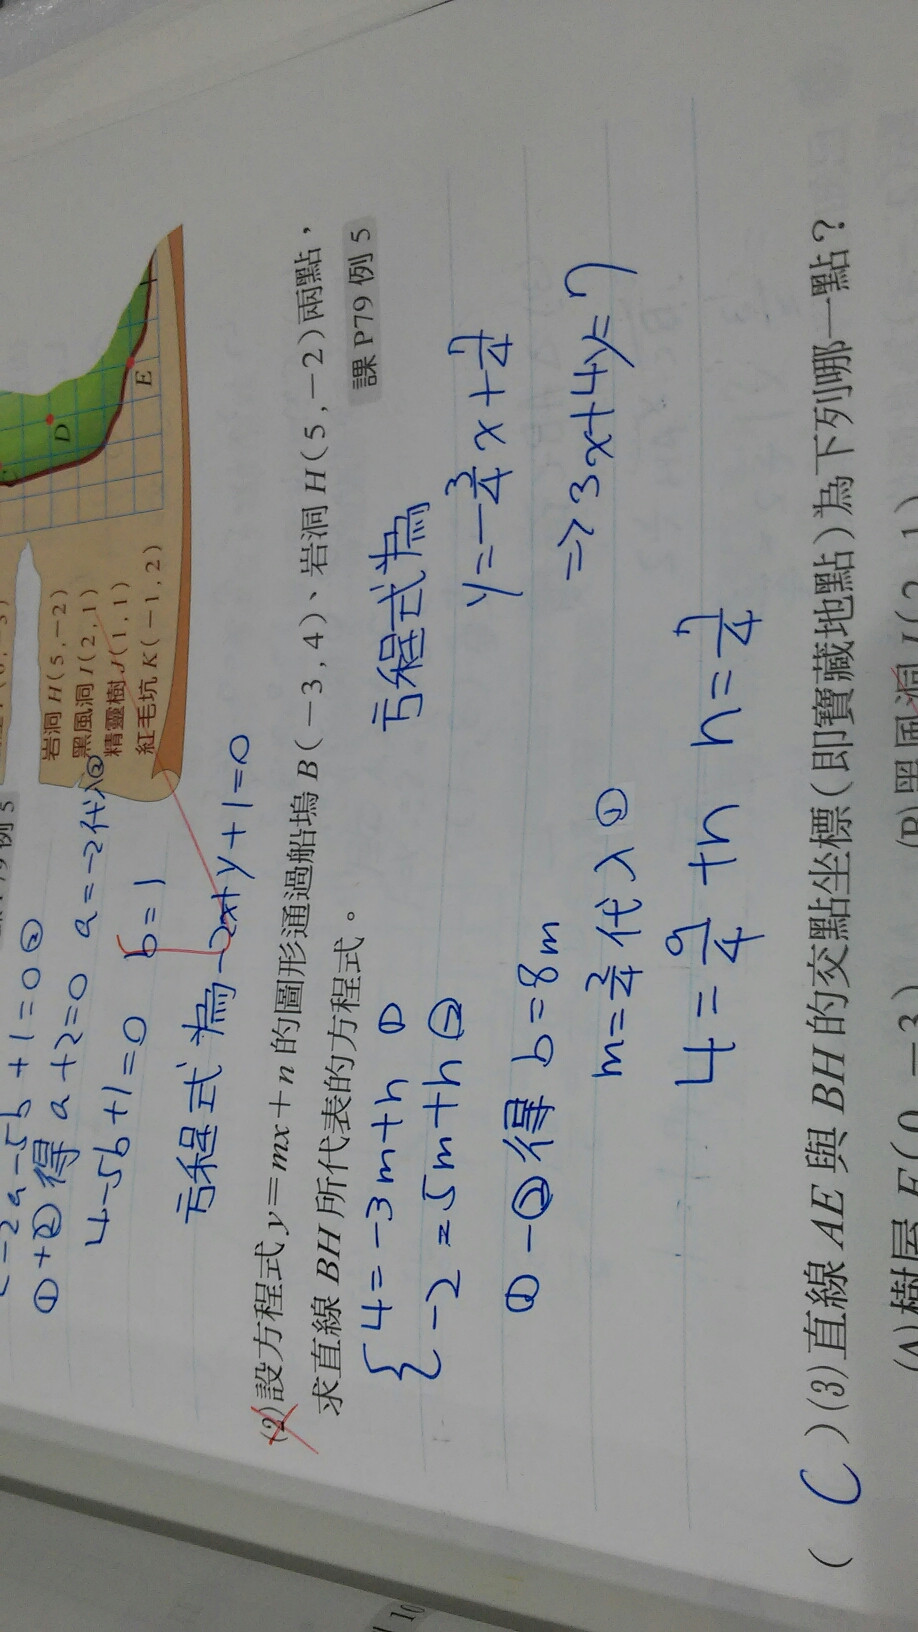 岩洞 H(5,-2)
黑風洞 I(2,1)
精靈樹 J(1,1)
紅毛坑 K(-1,2)
D
E
-2a-5b+1=0②
①+②得 a+2=0 a=-2代入②
4-5b+1=0 b=1
方程式為-2x+y+1=0
(2)設方程式 y=mx+n 的圖形通過船塢 B(-3,4)、岩洞 H(5,-2)兩點,
求直線 BH 所代表的方程式。 課 P79 例 5
4=-3m+n ①
-2=5m+n ②
方程式為
y=-3/4x+7/4
①-②得 6=8m
⇒3x+4y=7
m=3/4代入①
4=9/4+n n=7/4
( C )(3)直線 AE 與 BH 的交點坐標(即寶藏地點)為下列哪一點?
(A)樹屋 F(0,-3) (B)黑風洞 I(2,1)
10